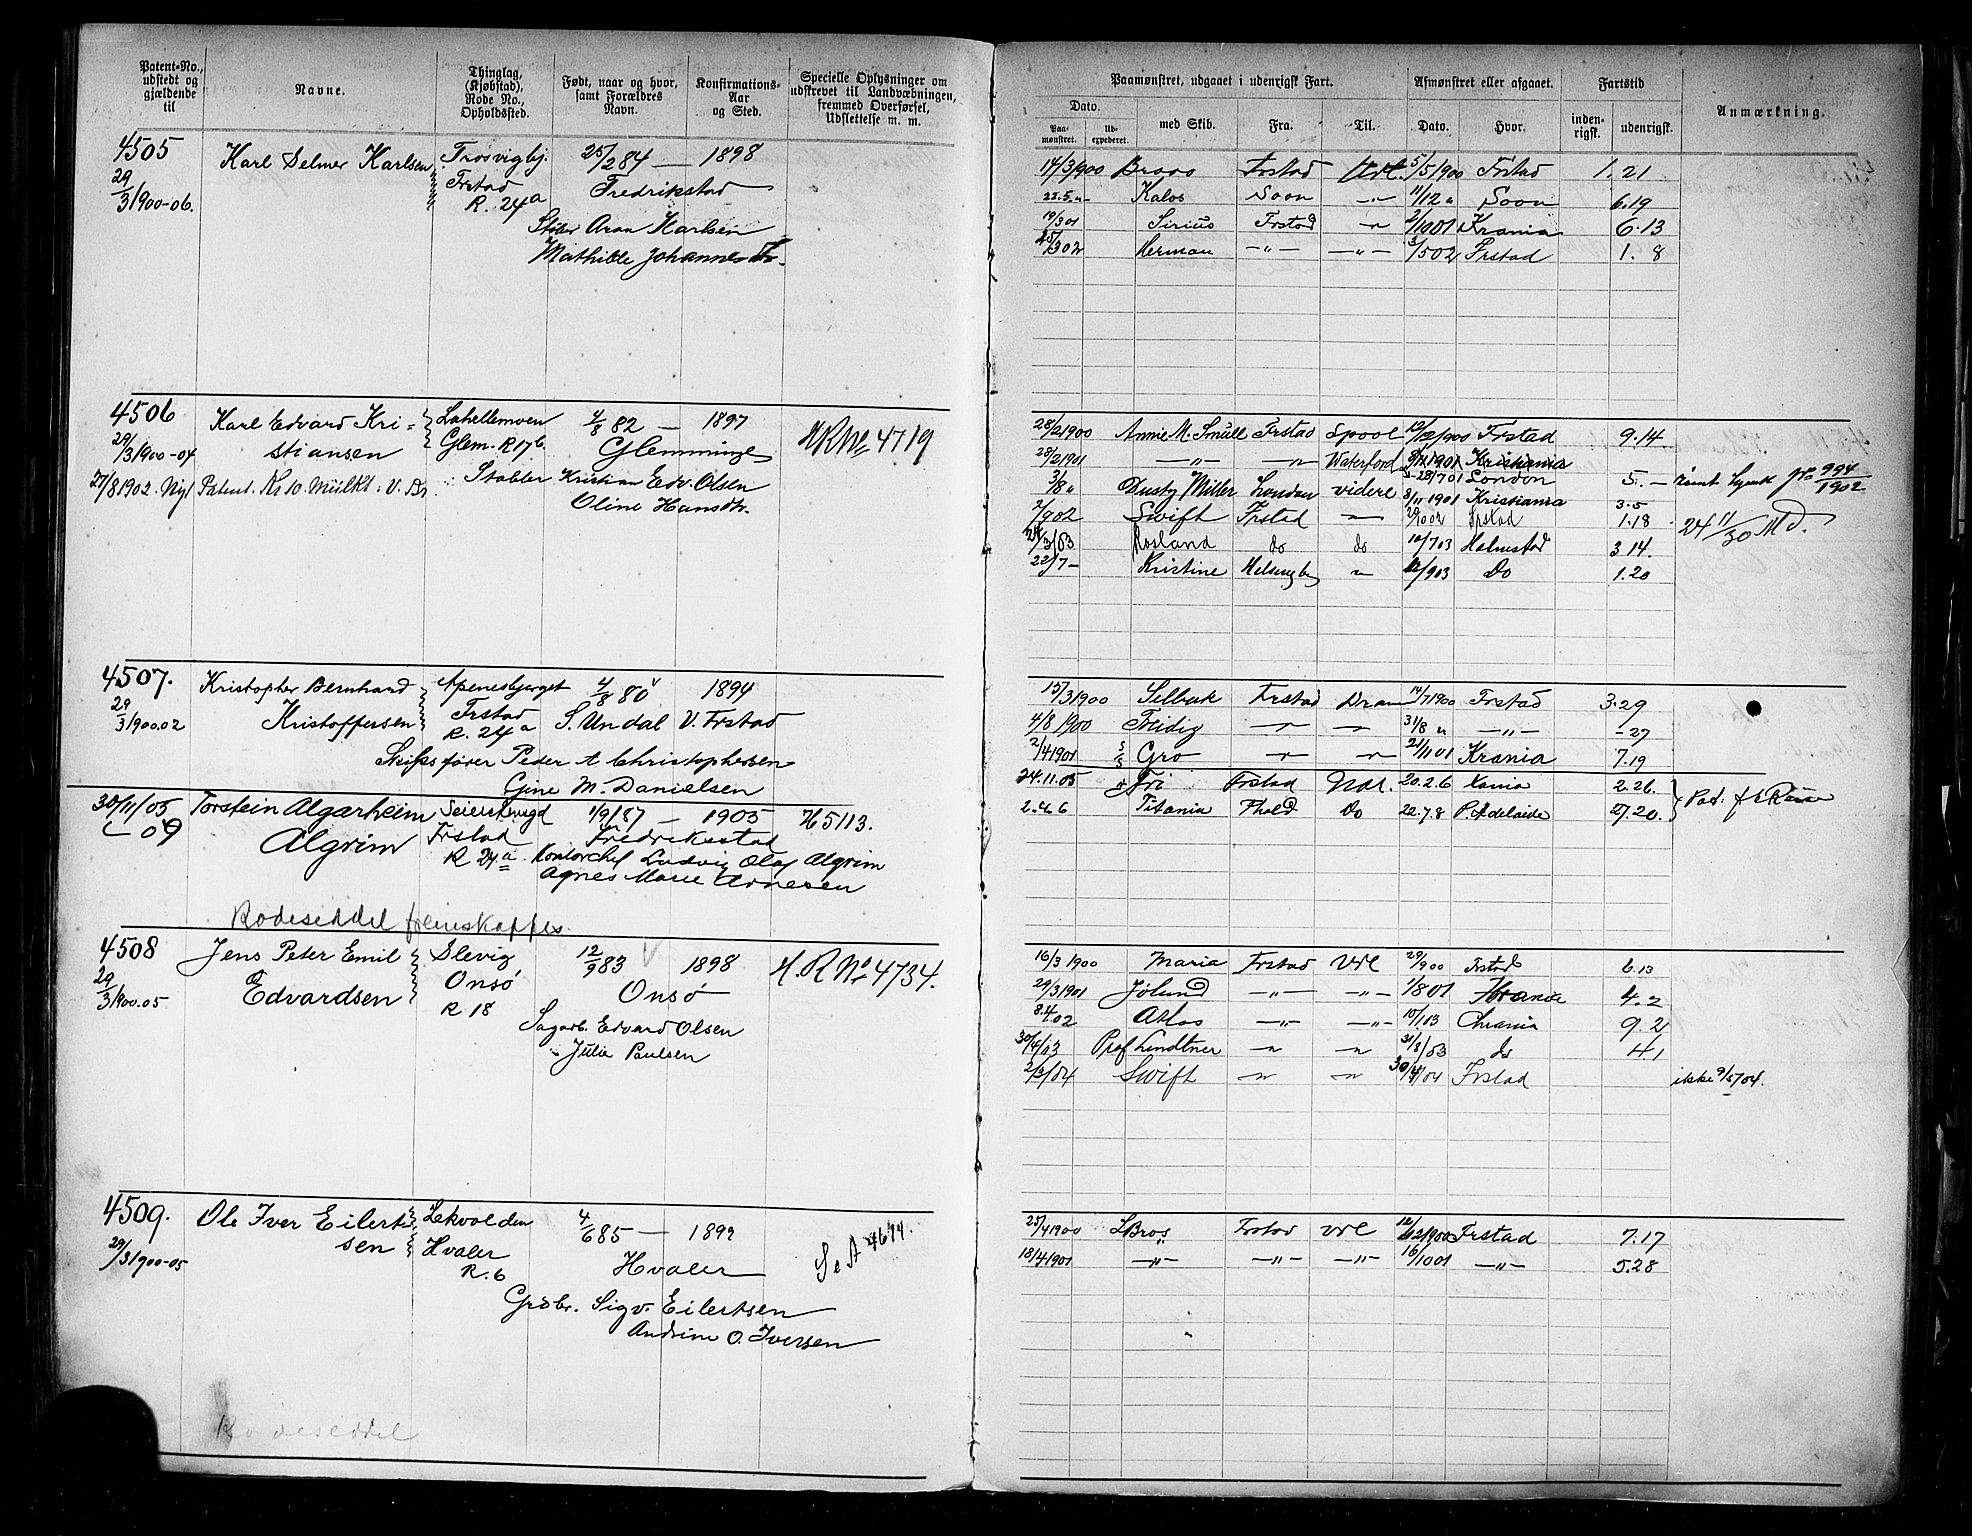 Patent-No., udstedt og gjældende til
Navne.
Thinglag, (Kjøbstad), Rode No., Opholdssted.
Født, naar og hvor, samt Forældres Navn.
Konfirmations-Aar og Sted.
Specielle Oplysninger om udskrevet til Landværbningen, fremmed Overførsel, Udslettelse m. m.
4505 Karl Selmer Karlsen Trosvigbj. 25/2 84 — 1898
29/3 1900-06. Frstad Fredrikstad
R. 24a
Aron Karlsen
Mathilde Johannesdtr.
4506 Karl Edvard Kri= Lahellemoen 4/8 82 — 1897 HRNo 4719
29/3 1900-04 stiansen Glem. R 17b. Glemminge
27/8 1902. Nyt Patent. Kr 10. Mulkt. Stabbler Kristian Edv. Olsen
Oline Hansdtr.
4507. Kristopher Bernhard Apenesbjerget 4/8 80 1894
29/3 1900.02 Kristoffersen Frstad S. Undal V. Frstad
R. 24a
Skibsfører Peder A Christophersen
Gine M. Danielsen
30/11/05 Torstein Algarheim 1/9/87 — 1905 H 5113.
— 09 Algrim Frstad Fredriksstad
R 24a Kontorchef Ludvig Olaf Algrim
Agnes Marie Arnesen
Rodeseddel
4508 Jens Peter Emil Slevig 12/9 83 1898 H. R No 4734.
29/3 1900.05 Edvardsen Onsø Onsø
R 18
Sagarb. Edvard Olsen
Julie Paulsen
4509. Ole Iver Eilert- 4/6 85 — 1899
29/3 1900-05 sen Hvaler Hvaler
R. 6
Grdbr. Sigv. Eilertsen
Andrine O. Iversen
Rodeseddel
Paamønstret, udgaaet i udenrigsk Fart.
Afmønstret eller afgaaet.
Fartstid
Anmærkning.
Dato.
Paa-mønstret.
Ud-expederet.
med Skib.
Fra.
Til.
Dato.
Hvor.
inden-rigsk.
udenrigsk.
14/3 1900 Bravo Frstad Udl. 5/5 1900 Frstad 1. 21
22.5.- Kalos Soon -"- 11/12 " Soon 6.19
19/3 01 Sirius Frstad -"- 2/10 01 Krania 6.13
25/3 02 Herman -"- -"- 3/5 02 Frstad 1. 8
28/2 1900 Annie M. Smull Frstad Spool 12/12 1900 Frstad 9.14.
28/2 1901 -"- -"- Waterford Kristiania
3/8 " Dusty Miller London videre 8/11 1901 Kristiania 3.5
2/9 02 Swift Frstad -"- 20/10 02 Frstad 1.18
Rosland do do 10/7 03 Halmstad 3 14.
22/7 - Kristine Helsingbg -"- 12/9 03 Do 1.20
994/1902
15/3 1900 Selbuk Frstad Dram 14/7 1900 Frstad 3.29
4/8 1900 Freidig -"- -"- 31/8 " -"- - 27
2/4 1901 Gro -"- -"- 21/11 01 Krania 7.19
24.11.05 Fri Frstad Udl. 20.2.6 Xania 2.26.
2.4.6 Titania Fhald Do 22.7.8 Pt Adelaide 27.20.
16/3 1900 Maria Frstad Udl 29/9 00 Frstad 6.13
29/3 1901 Jølund -"- -"- 1/8 01 4. 2
8.4.02 Atlas -"- -"- 10/1 03 Chrania 9. 2
30/4/03 Prof Lindtner -"- -"- 31/8/03 do 4.1
2/3/04 Swift -"- -"- 30/4/04 Frstad ikke 9/5 04.
25/4 1900 Bros Frstad Udl 12/12 1900 Frstad 7.17
18/4 1901 -"- -"- -"- 16/10 01 -"- 5.28